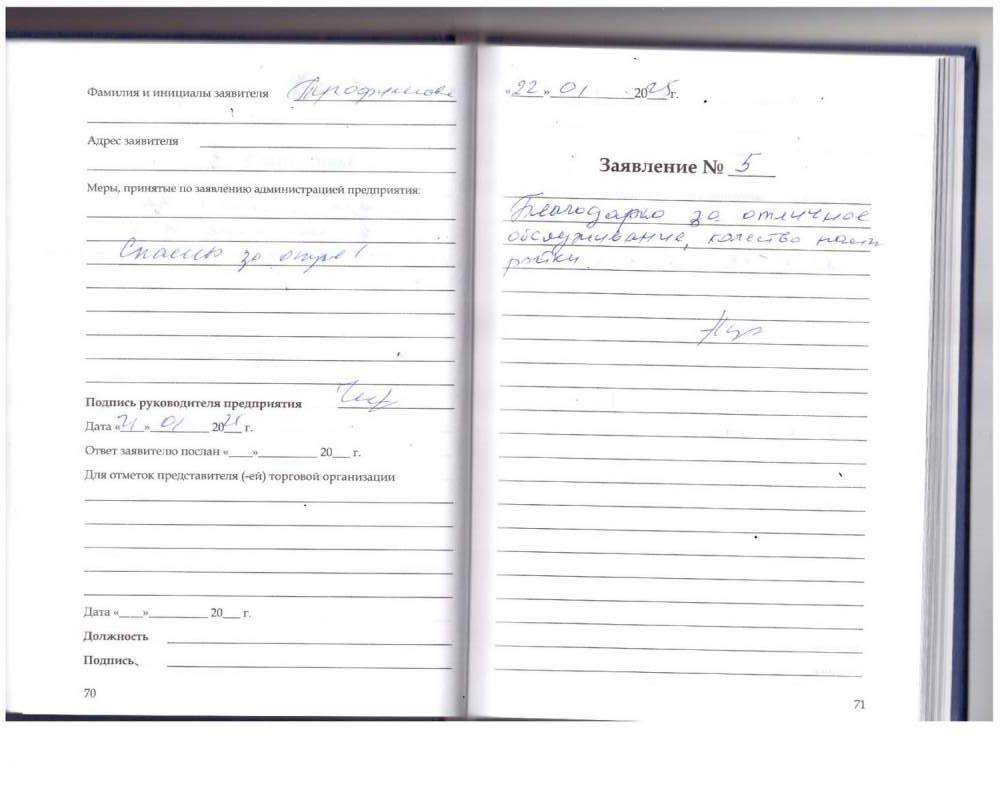 Фамилия и инициалы заявителя Трофимова
Адрес заявителя
Меры, принятые по заявлению администрацией предприятия:
Спасибо за отзыв!
Подпись руководителя предприятия
Дата «21» 01 2025 г.
Ответ заявителю послан «____»__________ 20___ г.
Для отметок представителя (-ей) торговой организации
Дата «____»__________ 20___ г.
Должность
Подпись
70
«22» 01 2025 г.
Заявление № 5
Благодарю за отличное
обслуживание, качество
71